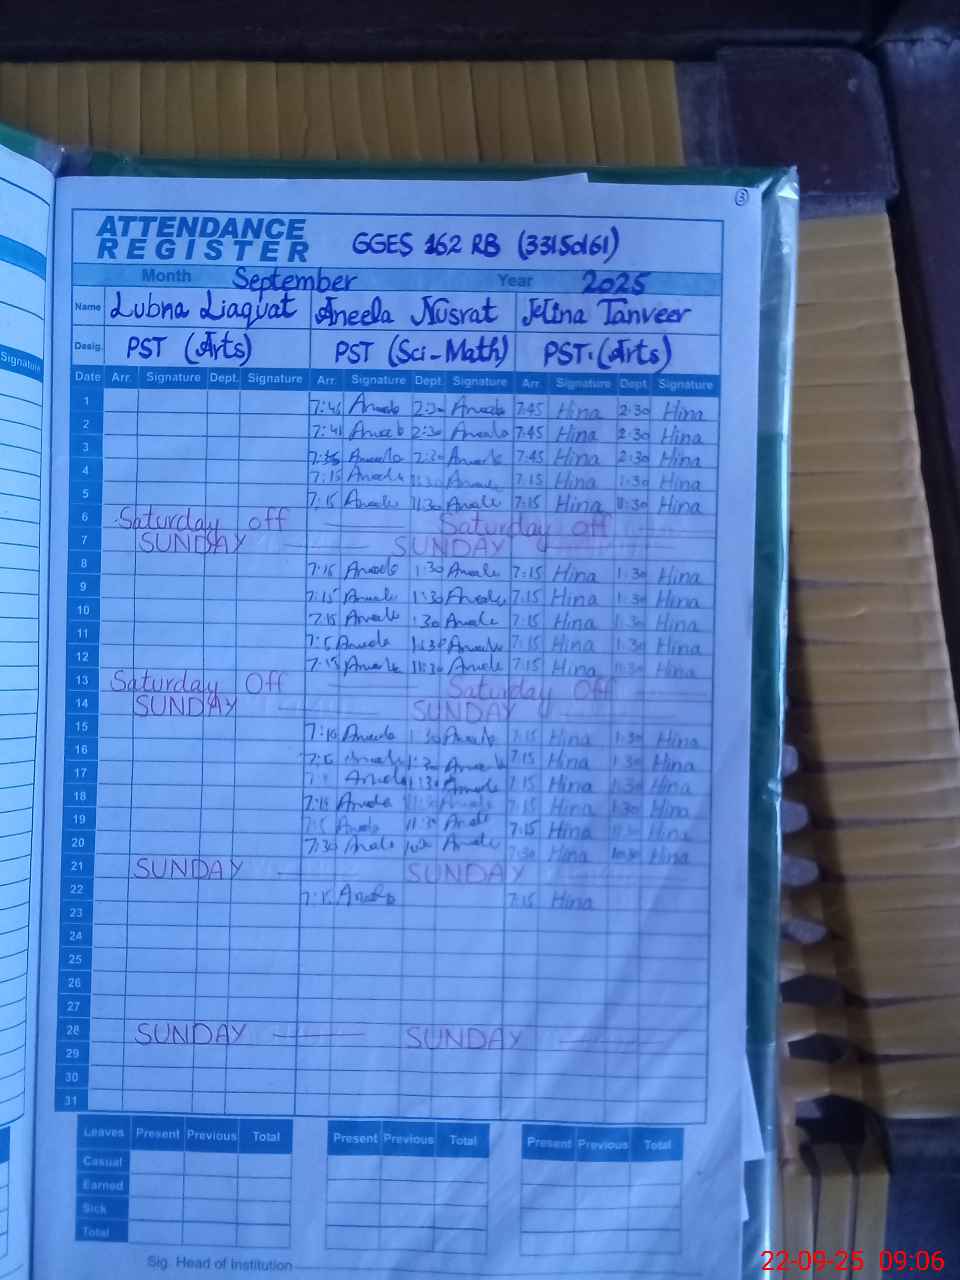 3
ATTENDANCE
REGISTER GGES 162 RB (33150161)
Month September Year 2025
Name Lubna Liaquat Aneela Nusrat Hina Tanveer
Desig. PST (Arts) PST (Sci-Math) PST. (Arts)
Signature
Date Arr. Signature Dept. Signature Arr. Signature Dept. Signature Arr. Signature Dept. Signature
1 7:45 2:30 7:45 Hina 2:30 Hina
2 7:41 2:30 7:45 Hina 2:30 Hina
3 2:30 7:45 Hina 2:30 Hina
4 7:15 7:15 Hina 1:30 Hina
5 7:15 11:30 7:15 Hina 11:30 Hina
6 Saturday off Saturday off
7 SUNDAY SUNDAY
8 7:15 1:30 7:15 Hina 1:30 Hina
9 7:15 1:30 7:15 Hina 1:30 Hina
10 7:15 1:30 7:15 Hina 1:30 Hina
11 1:30 7:15 Hina 1:30 Hina
12 7:15 11:30 7:15 Hina 11:30 Hina
13 Saturday Off Saturday Off
14 SUNDAY SUNDAY
15 1:30 7:15 Hina 1:30 Hina
16 1:30 7:15 Hina 1:30 Hina
17 1:30 7:15 Hina 1:30 Hina
18 7:15 Hina 1:30 Hina
19 11:30 7:15 Hina Hina
20 7:30 7:30 Hina 10:30 Hina
21 SUNDAY SUNDAY
22 7:15 7:15 Hina
23
24
25
26
27
28 SUNDAY SUNDAY
29
30
31
Leaves Present Previous Total Present Previous Total Present Previous Total
Casual
Earned
Sick
Total
Sig. Head of Institution
22-09-25 09:06